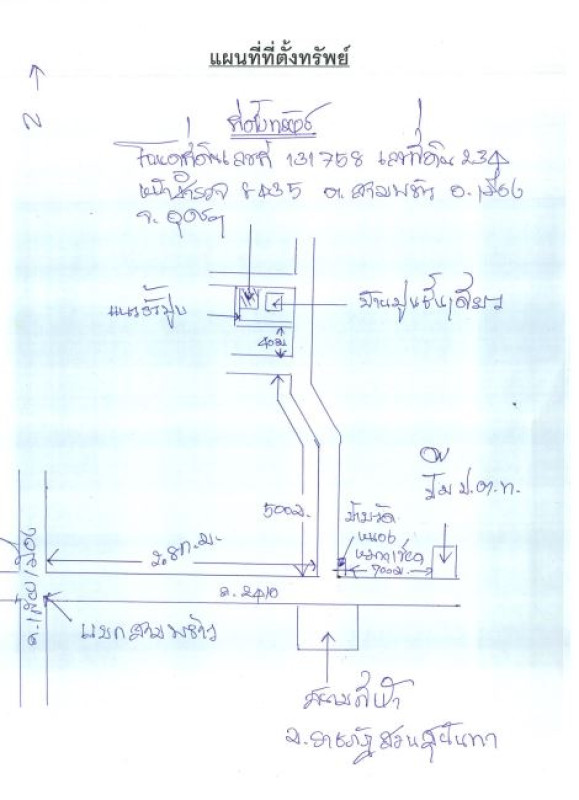 แผนที่ที่ตั้งทรัพย์
N
ที่ตั้งทรัพย์
โฉนดที่ดินเลขที่ 131758 เลขที่ดิน 234
หน้าสำรวจ 8435 ต.สามพร้าว อ.เมือง
จ.อุดรฯ
แนวรั้วปูน
บ้านปูนชั้นเดียว
40ม
ปั๊ม ป.ต.ท.
500ม.
ป้ายวัด
หนอง
2.8ก.ม.
700ม.
ถ.เลี่ยงเมือง
ถ. 2410
แยกสามพร้าว
สนามกีฬา
ม.ราชภัฏสวนสุนันทา